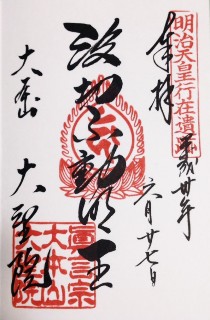 明治天皇行在遺跡
奉拝
平成卅年
六月廿七日
波切不動明王
大本山 大聖院
真言宗
大本山
大聖院